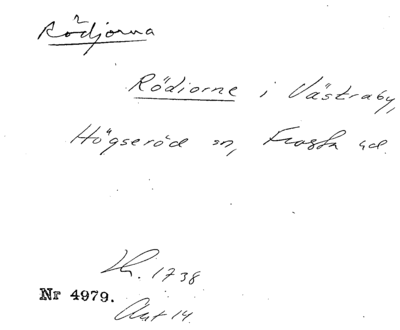 Rödjorna
Rödiorne i Västraby,
Högseröd sn, Frosta hd.
Lh. 1738
Nr 4979.
Akt 14